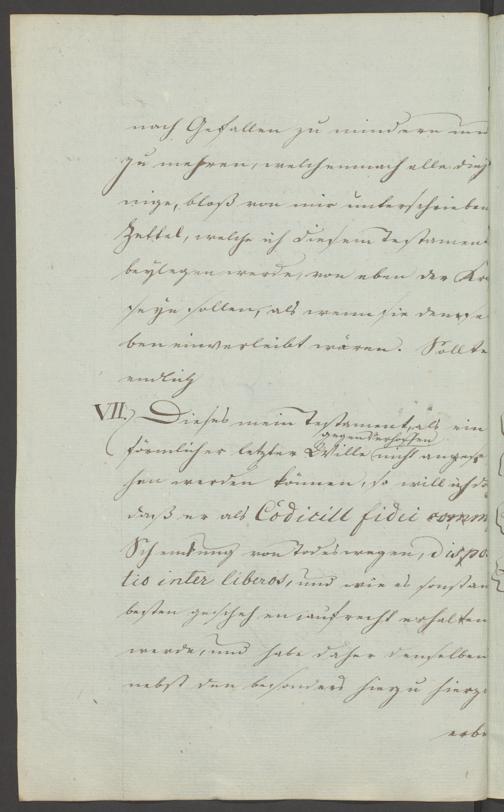 nach Gefallen zu mindern und
zu mehren, welchemnach alle diej
nige, bloß von mir unterschrieben
Zettel, welche ich diesem Testament
beylegen werde, von eben der Kr
seyn sollen, als wenn sie demse
ben einverleibt wären. Sollte
endlich
VII.) Dieses mein Testament, als ein
gegen verhoffen
förmlicher letzter Wille nicht angese
hen werden können, so will ich do
daß er als Codicill fidei comm
Schenkung von Todeswegen, dispo
tio inter liberos, und wie es sonst am
besten geschehen, aufrecht erhalten
werde, und habe daher denselben
nebst den besonders hiezu hierge
erbe